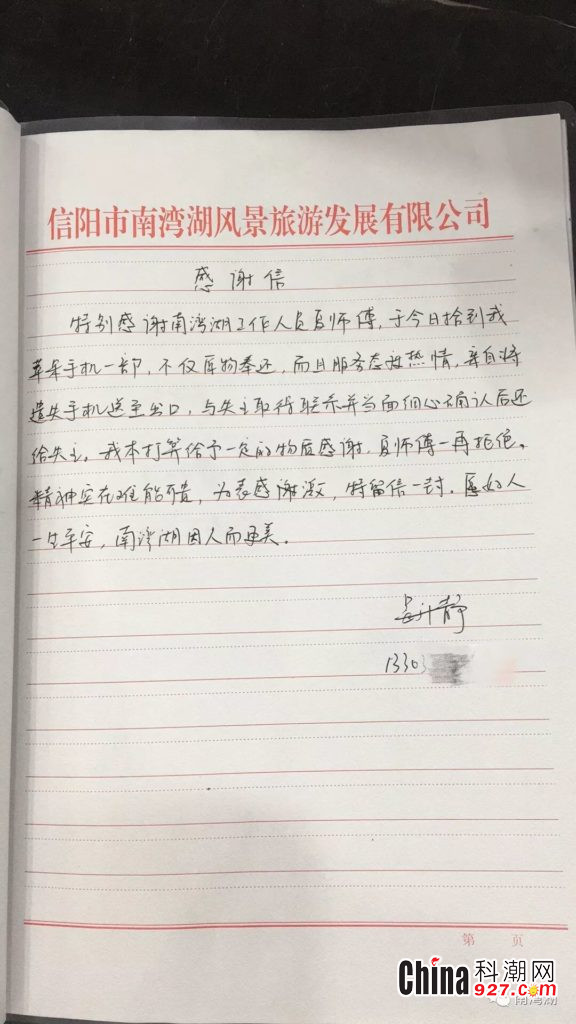 信阳市南湾湖风景旅游发展有限公司
感谢信
特别感谢南湾湖工作人员夏师傅，于今日拾到我
苹果手机一部，不仅原物奉还，而且服务态度热情，亲自将
遗失手机送至出口，与失主取得联系并当面细心确认后还
给失主。我本打算给予一定的物质感谢，夏师傅一再拒绝。
精神实在难能可贵，为表感谢激，特留信一封。愿好人
一生平安，南湾湖因人而更美。
静
13303
第 页
China科潮网
927.com
南湾湖